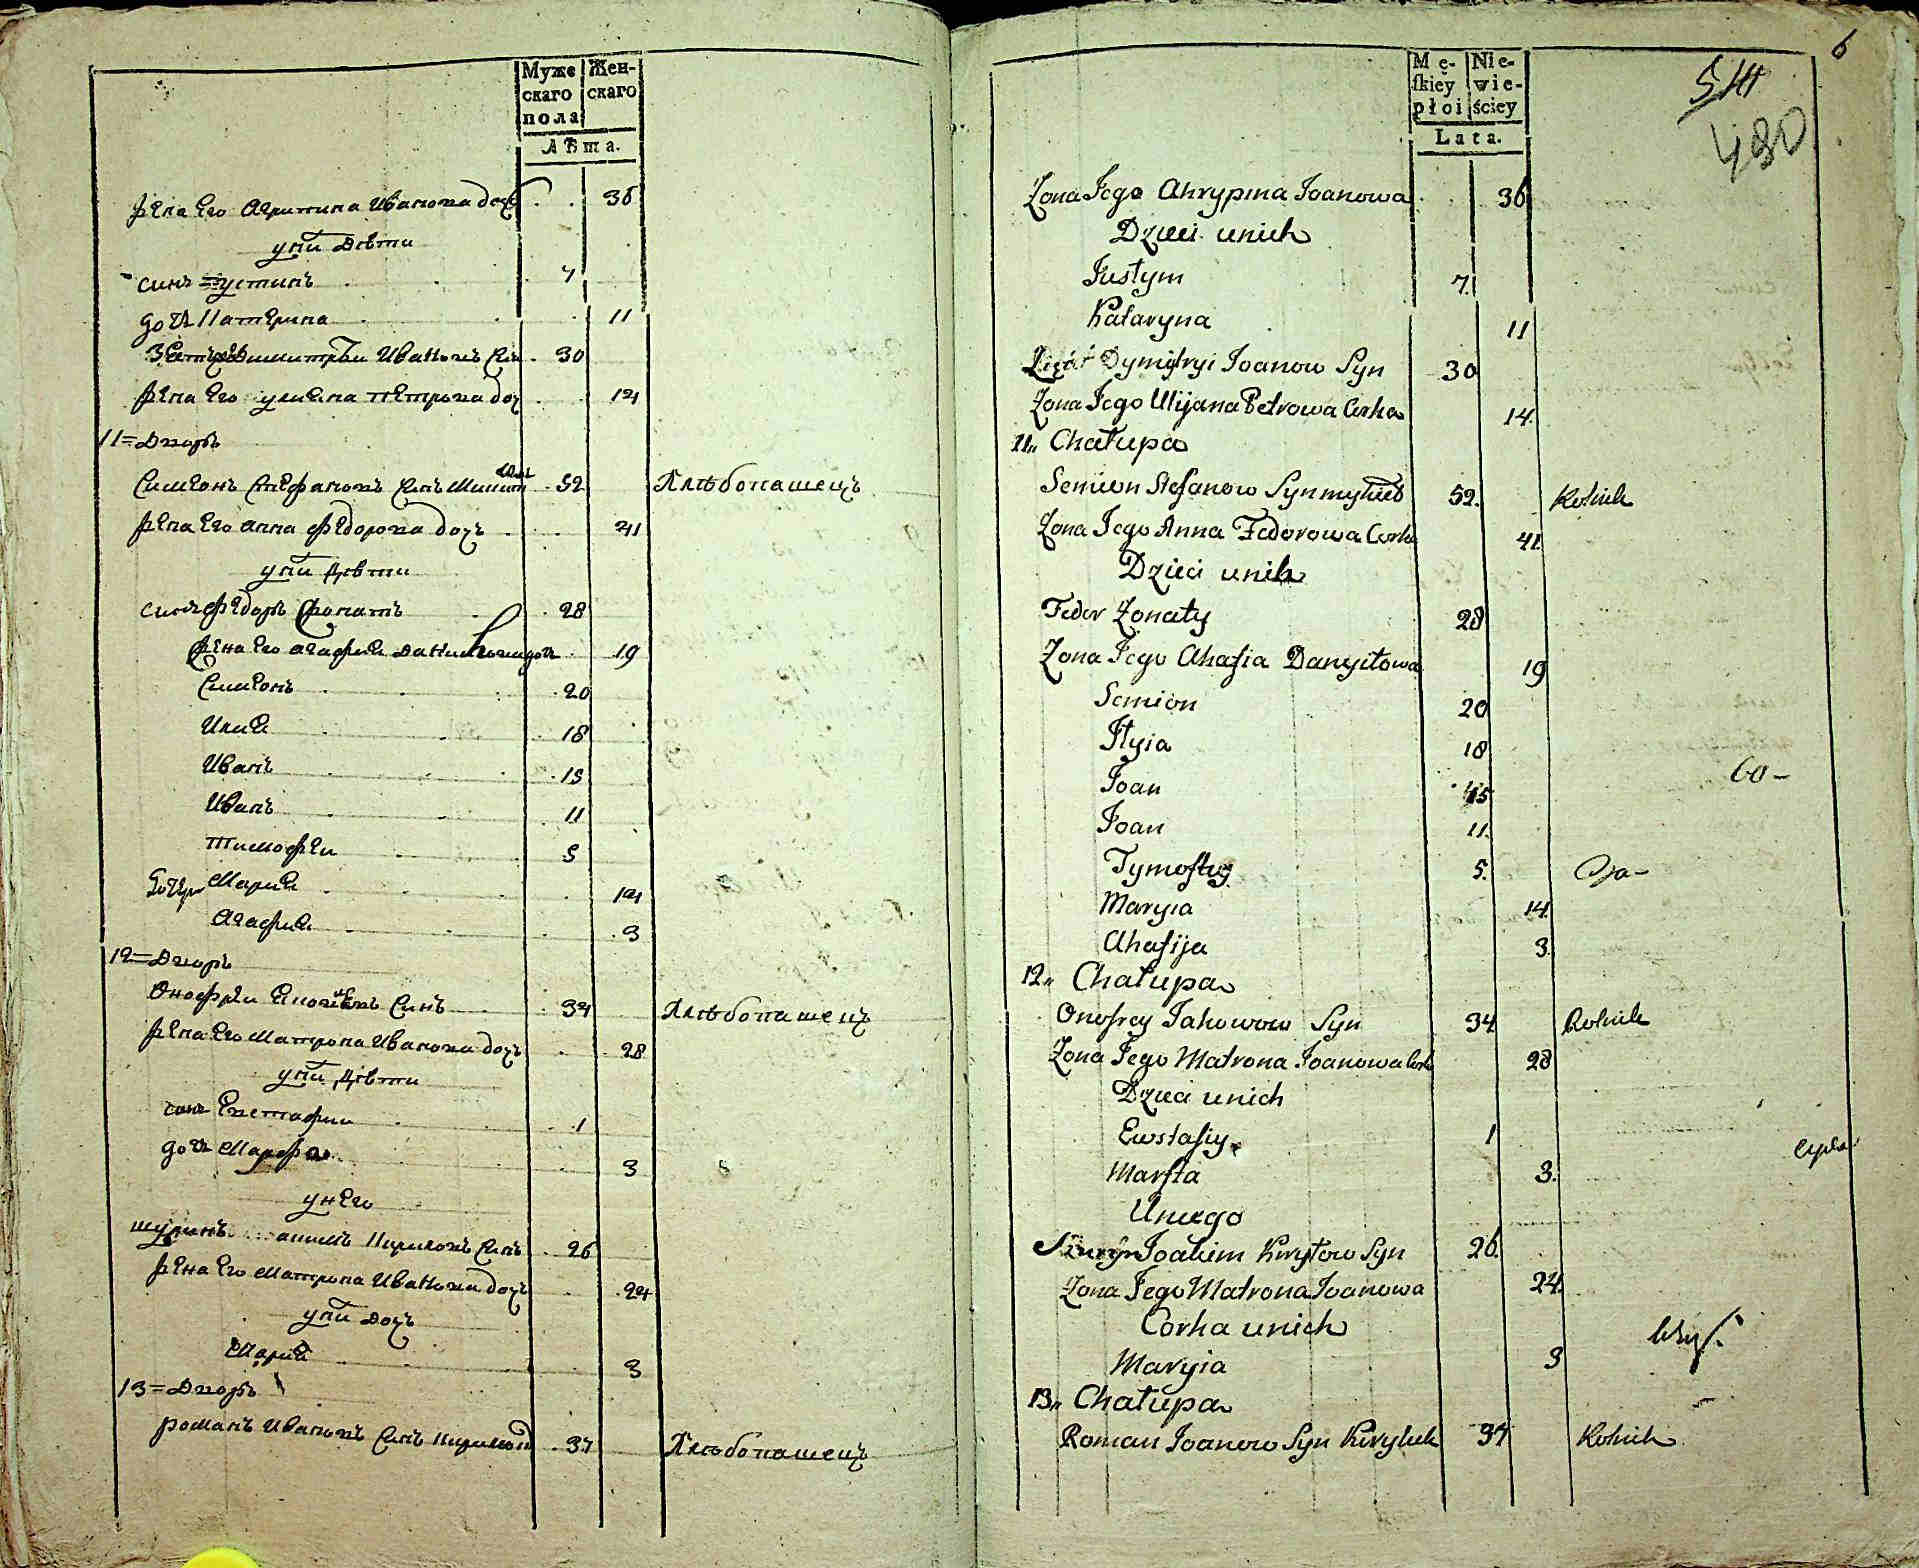 Муже
скаго
пола
Жен-
скаго
Лѣта.
жена его Агрипина Иванова доч 36
у них дѣти
синъ Устинъ 7
дочь Катерина 11
Зять Димитрѣй Ивановъ синъ 30
жена его Улиана Петрова доч 14
11 = Дворъ
Симеонъ Стефановъ синъ 52 Хлѣбопашецъ
жена его Анна Федорова дочъ 41
у них дѣти
синъ Федоръ женатъ 28
жена его Агафиа Данилова доч 19
Симеонъ 20
Илиа 18
Иванъ 15
Иванъ 11
Тимофей 5
дочери Мариа 14
Агафиа 3
12 = Дворъ
Онофрей синъ 34 Хлѣбопашецъ
жена его Матрона Иванова дочъ 28
у них дѣти
синъ Евстафий 1
дочь Марфа 3
у него
шуринъ Кириловъ синъ 26
жена его Матрона Иванова дочъ 24
у них дочъ
Мариа 3
13 = Дворъ
Романъ Ивановъ синъ 37 Хлѣбопашецъ
6
Mę-
skiey
płci
Nie-
wie-
ściey
Lata.
514
480
Zona Jego Ahrypina Joanowa 36
Dzieci unich
Justym 7.
Kataryna 11
Zięć Dymitryi Joanow Syn 30
Zona Jego Ulijana Petrowa Corka 14.
11„ Chałupa
Semion Stefanow Syn 52. Rolnik
Zona Jego Anna Fedorowa Corka 41
Dzieci unich
Fedor Zonaty 28
Zona Jego Ahafia Danyiłowa 19
Semion 20
Jłyia 18
Joan 15
Joan 11.
Tymoftey 5.
Maryia 14.
Ahafija 3.
12„ Chałupa
Onofrey Jakowow Syn 34 Rolnik
Zona Jego Matrona Joanowa Cork 28
Dzieci unich
Ewstafiy 1
Marfta 3.
Uniego
Szuryn Joakim Kiryłow Syn 26.
Zona Jego Matrona Joanowa 24.
Corka unich
Maryia 3
13„ Chałupa
Roman Joanow Syn Kiryluk 37 Rolnik